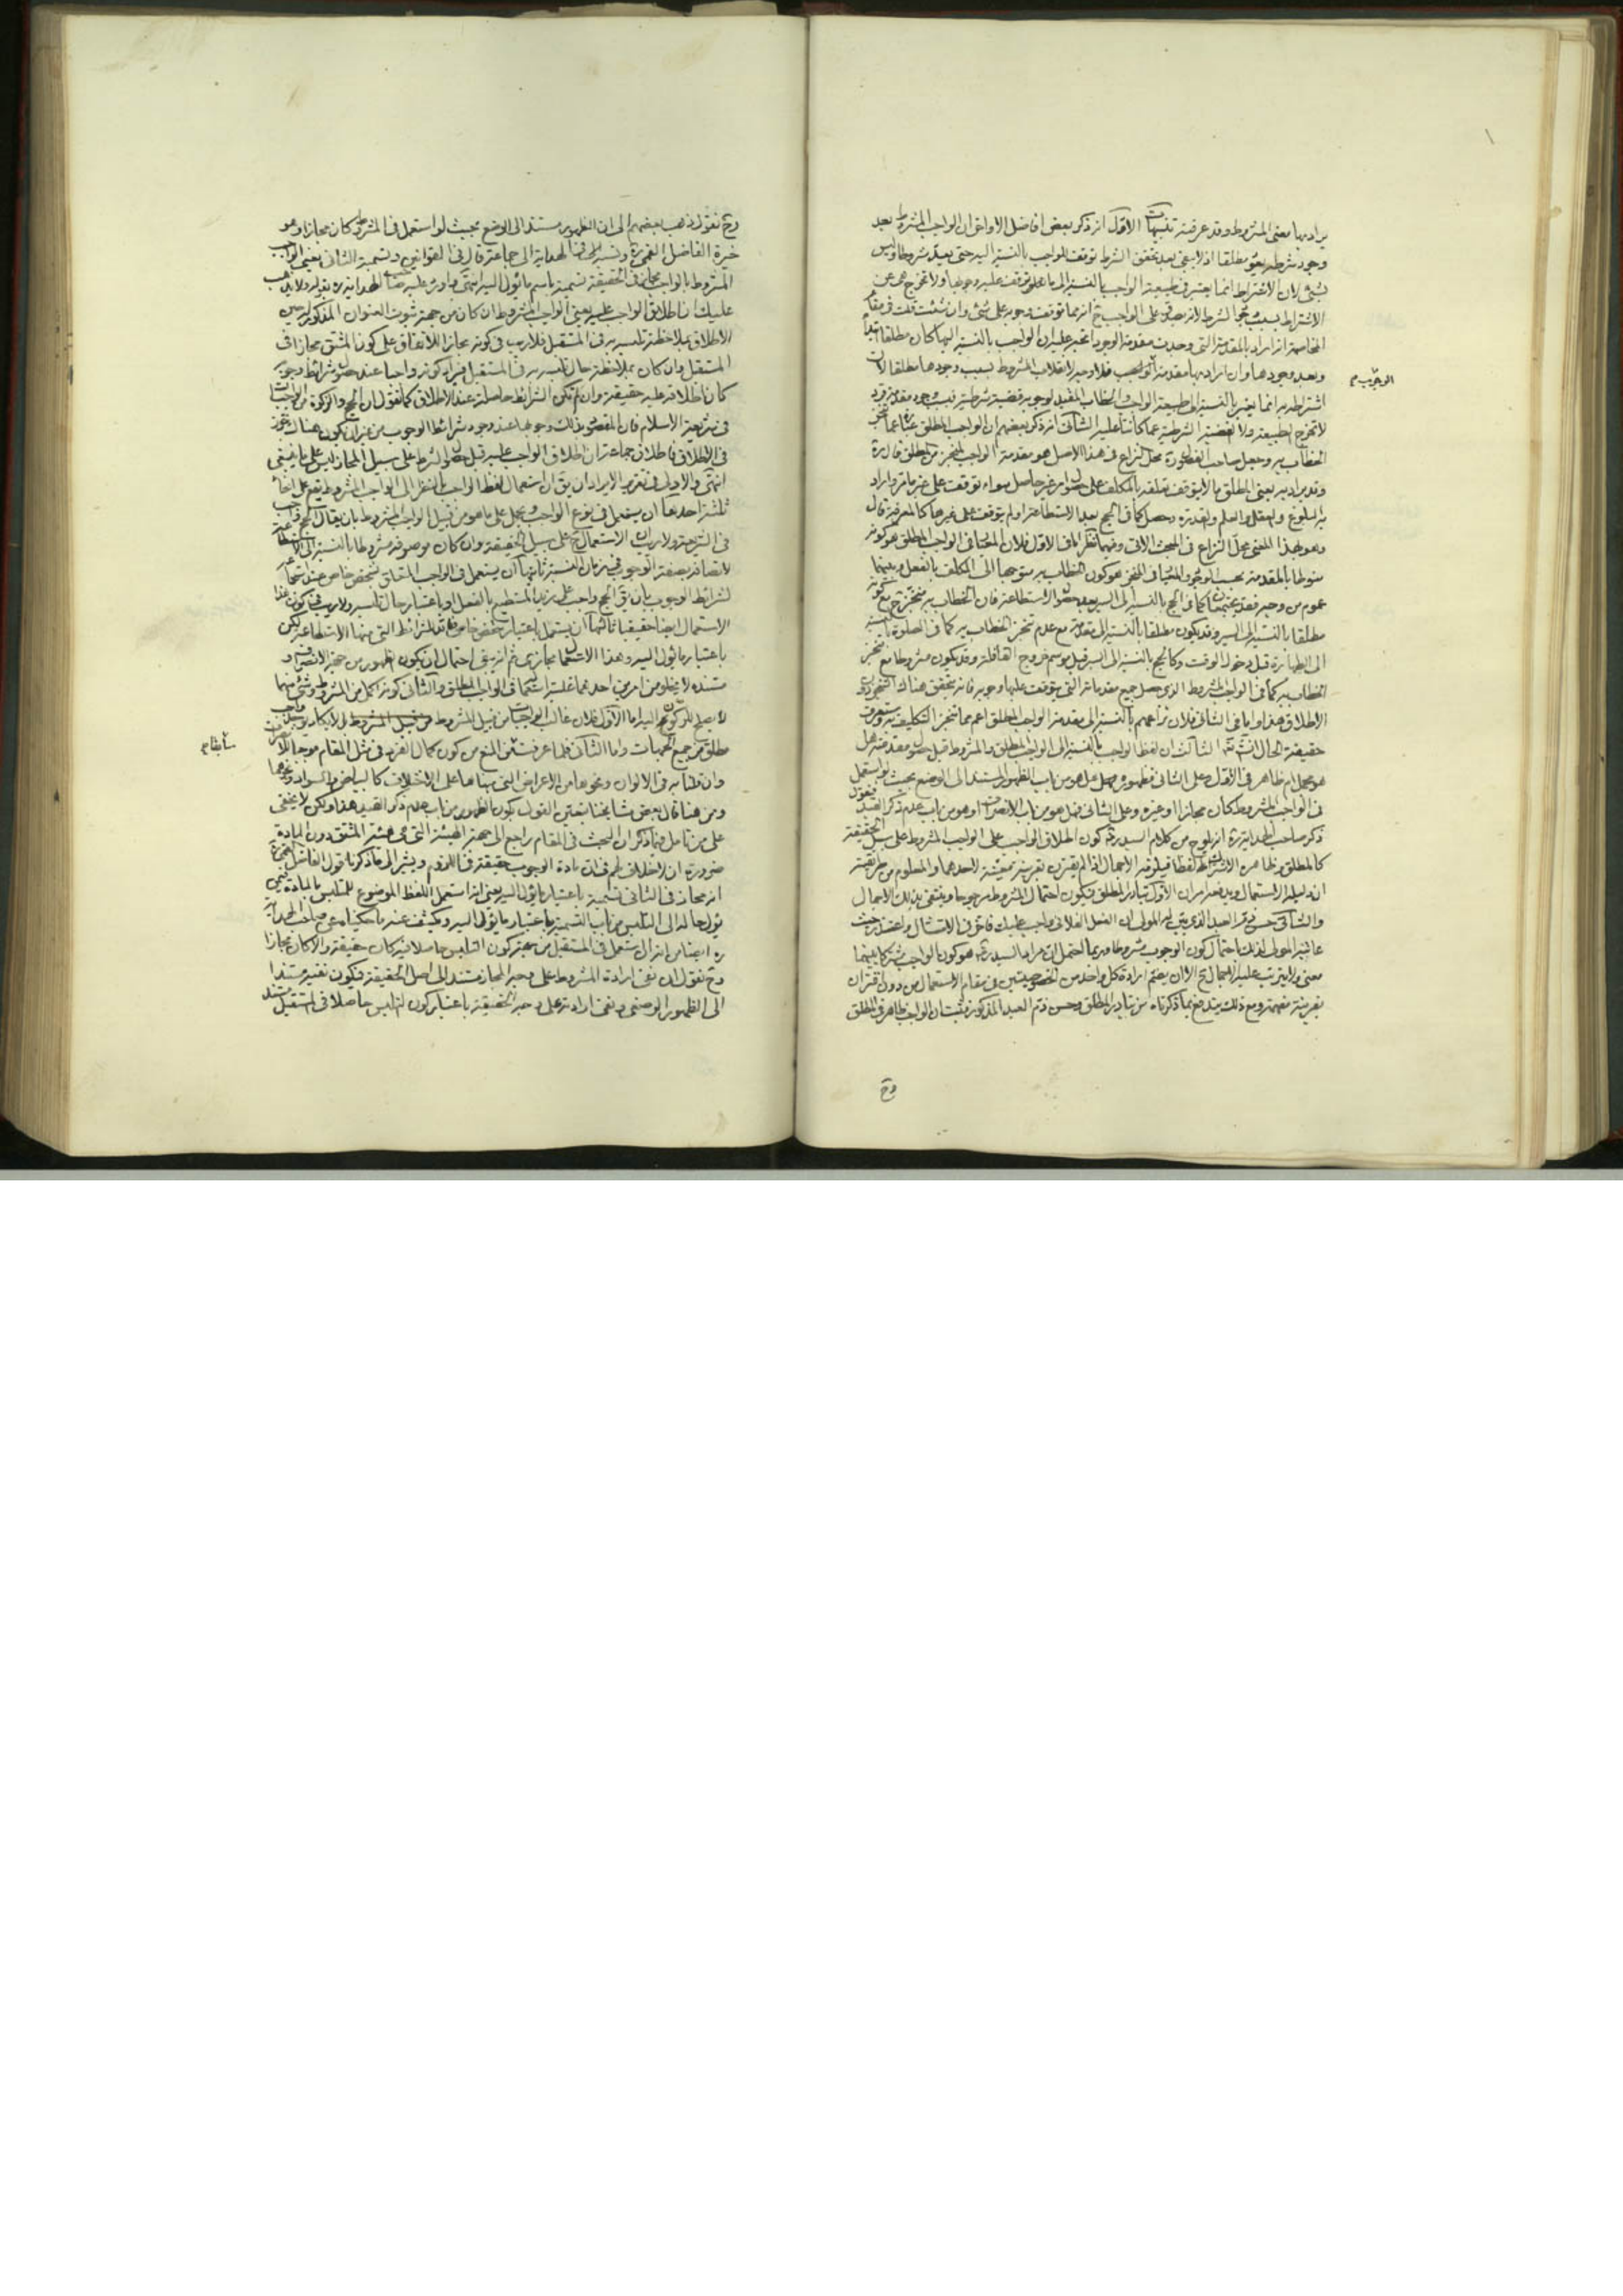 يراد بها معنى المشروط وقد عرفته تنبيهات الأول انه ذكر بعض افاضل الاواخر ان الواجب المشروط بعد
وجود شرطه مطلقا اذ لا يبقى بعد تحقق الشرط توقف للواجب بالنسبة اليه حتى يعد مشروطا وليس
بشئ لان الاشتراط انما يعتبر في طبيعة الواجب بالنسبة الى ما علق توقف عليه وجوبها ولا تخرج هي عن
وبعد وجودها وان اراد بها مقدمة الواجب فلا وجه لانقلاب المشروط بسبب وجودها مطلقا لان
الوجوب م
اشتراطه به انما يعتبر بالنسبة الى طبيعة الواجب والخطاب المفيد لوجوبه قضية شرطية
لا تخرج الطبيعة ولا القضية الشرطية عما كانتا عليه الثانى انه ذكر بعضهم ان الواجب المطلق
الخطاب به وجعل صاحب محل النزاع في هذا الاصل هو مقدمة الواجب المنجز من المطلق قال ره
وقد يراد به يعنى المطلق ما لا يتوقف تعلقه بالمكلف على حصول امر غير حاصل سواء توقف على غير ما مر واراد
به البلوغ والعقل والعلم والقدرة وحصل كما في الحج بعد الاستطاعة او لم يتوقف على غيرها كالمعرفة قال
وهو بهذا المعنى محل النزاع في المبحث الاتى وفيهما نظر اما في الاول فلان المعيار في الواجب المطلق هو كونه
منوطا بالمقدمة بحسب الوجود والمعيار في المنجز هو كون الخطاب به متوجها الى المكلف بالفعل وبينهما
عموم من وجه فقد يجتمعان كما في الحج بالنسبة الى السير بعد حصول الاستطاعة فان الخطاب به منجز ح مع كونه
مطلقا بالنسبة الى السير وقد يكون مطلقا بالنسبة الى مقدمة مع عدم تنجز الخطاب به كما في الصلوة بالنسبة
الى الطهارة قبل دخول الوقت وكالحج بالنسبة الى السير قبل موسم خروج القافلة وقد يكون مشروطا مع تنجز
الخطاب به كما في الواجب المشروط الذى حصل جميع مقدماته التى يتوقف عليها وجوبه فانه يتحقق هناك التنجز دون
الاطلاق هذا واما في الثانى فلان نزاعهم بالنسبة الى مقدمة الواجب المطلق اعم مما تنجز التكليف به وستعرف
حقيقة الحال انش تعالى الثالث ان لفظ الواجب بالنسبة الى الواجب المطلق والمشروط قبل حصول مقدمته هل
هو مجمل ام ظاهر في الاول وعلى الثانى فظهوره هل هو من باب الظهور المستند الى الوضع بحيث لو استعمل
في الواجب المشروط كان مجازا او غيره وعلى الثانى فهل هو من باب الانصراف او هو من باب عدم ذكر القيد فنقول
ذكر صاحب الهداية ره انه يلوح من كلام السيد ره كون اطلاق الواجب على الواجب المشروط على سبيل الحقيقة
كالمطلق وظاهره الاشتراك لفظا فيلزمه الاجمال اذا لم يقترن بقرينة معينة لاحدهما والمعلوم من طريقته
ان دليله الاستعمال ويدفعه امران الاول تبادر المطلق فيكون احتمال المشروط مرجوحا وينتفى بذلك الاجمال
والثانى حسن ذم العبد الذى يقول له المولى ان الفعل الفلانى واجب عليك فاخر في الامتثال واعتذر حيث
عاتبه المولى لذلك باحتمال كون الوجوب مشروطا وربما احتمل ان مراد السيد ره هو كون الواجب مشتركا بينهما
معنى ولا يترتب عليه الاجمال ح الا ان يعلم ارادة كل واحد من الخصوصيتين في مقام الاستعمال من دون اقتران
بقرينة مفهمة ومع ذلك يندفع بما ذكرناه من تبادر المطلق وحسن ذم العبد المذكور فثبت ان الواجب ظاهر في المطلق
وح
وح نقول ذهب بعضهم الى ان الظهور مستند الى الوضع بحيث لو استعمل في المشروط كان مجازا وهو
خيرة الفاضل القمى ره ونسبه في الهداية الى جماعة قال في القوانين وتسمية الثانى يعنى الواجب
المشروط بالواجب مجاز في الحقيقة تسمية باسم ما يؤول اليه انتهى واورد عليه صاحب الهداية ره بقوله ولا يذهب
عليك ان اطلاق الواجب عليه يعنى الواجب المشروط ان كان من جهة ثبوت العنوان المذكور له حين
الاطلاق بملاحظة تلبسه به في المستقبل فلا ريب في كونه مجازا للاتفاق على كون المشتق مجازا في
المستقبل وان كان بملاحظة حال تلبسه به في المستقبل فيراد كونه واجبا عند حصول شرائط وجوبه
كان اطلاقه عليه حقيقة وان لم تكن الشرائط حاصلة عند الاطلاق كما تقول ان الحج والزكوة من الواجبات
في شريعة الاسلام فان المقصود بذلك وجوبها عند وجود شرائط الوجوب من غير ان يكون هناك تجوز
في الاطلاق فاطلاق جماعة ان اطلاق الواجب عليه قبل حصول الشرط على سبيل المجاز ليس على ما ينبغى
انتهى والاولى في تقرير الايراد ان يق ان استعمال لفظ الواجب بالنظر الى الواجب المشروط يقع على انحاء
ثلثة احدها ان يستعمل في نوع الواجب ويحمل على ما هو من قبيل الواجب المشروط بان يقال الحج واجب
في الشريعة ولا ريب ان الاستعمال ح على سبيل الحقيقة وان كان موصوفه مشروطا بالنسبة الى الاستطاعة
لاتصافه بصفة الوجوب في زمان النسبة ثانيها ان يستعمل في الواجب المتعلق بشخص خاص عند استجماعه
لشرائط الوجوب بان يق الحج واجب على زيد المستطيع بالفعل او باعتبار حال تلبسه ولا ريب في كون هذا
الاستعمال ايضا حقيقيا ثالثها ان يستعمل باعتبار شخص خاص فاقد للشرائط التى منها الاستطاعة لكن
باعتبار ما يؤول اليه وهذا الاستعمال مجازى ثم انه بقى احتمال ان يكون الظهور من جهة الانصراف و
مستنده لا يخلو من امرين احدهما غلبة استعماله في الواجب المطلق والثانى كونه اكمل من المشروط وشئ منهما
لا يصلح للركون اليه اما الاول فلان غالب الواجبات من قبيل المشروط
مطلق من جميع الجهات واما الثانى فلما عرفت من المنع من كون كمال الفرد في مثل المقام موجبا للانصراف
سابقا م
وان قلنا به في الالوان ونحوها من الاعراض التى مبناها على الاختلاف كالبياض والسواد ونحوهما
ومن هنا قال بعض مشايخنا بتعين القول بكون الظهور من باب عدم ذكر القيد هذا ولكن لا يخفى
على من تامل فيما ذكر ان البحث في المقام راجع الى جهة الهيئة التى هى هيئة المشتق دون المادة
ضرورة ان لا خلاف لهم في ان مادة الوجوب حقيقة في اللزوم ويشير الى ما ذكرنا قول الفاضل القمى ره
انه مجاز في الثانى تسمية باعتبار ما يؤل اليه يعنى انه استعمل اللفظ الموضوع للتلبس بالمادة فيمن
يؤل حاله الى التلبس من باب التسمية باعتبار ما يؤل اليه ويكشف عنه ما حكيناه عن صاحب الهداية
ره ايضا من انه ان استعمل في المستقبل من جهة كون التلبس حاصلا فيه كان حقيقة والا كان مجازا
وح نقول ان نفى ارادة المشروط على وجه المجاز مستند الى اصل الحقيقة فيكون نفيه مستندا
الى الظهور الوضعى ونفى ارادته على وجه الحقيقة باعتبار كون التلبس حاصلا في المستقبل مستند